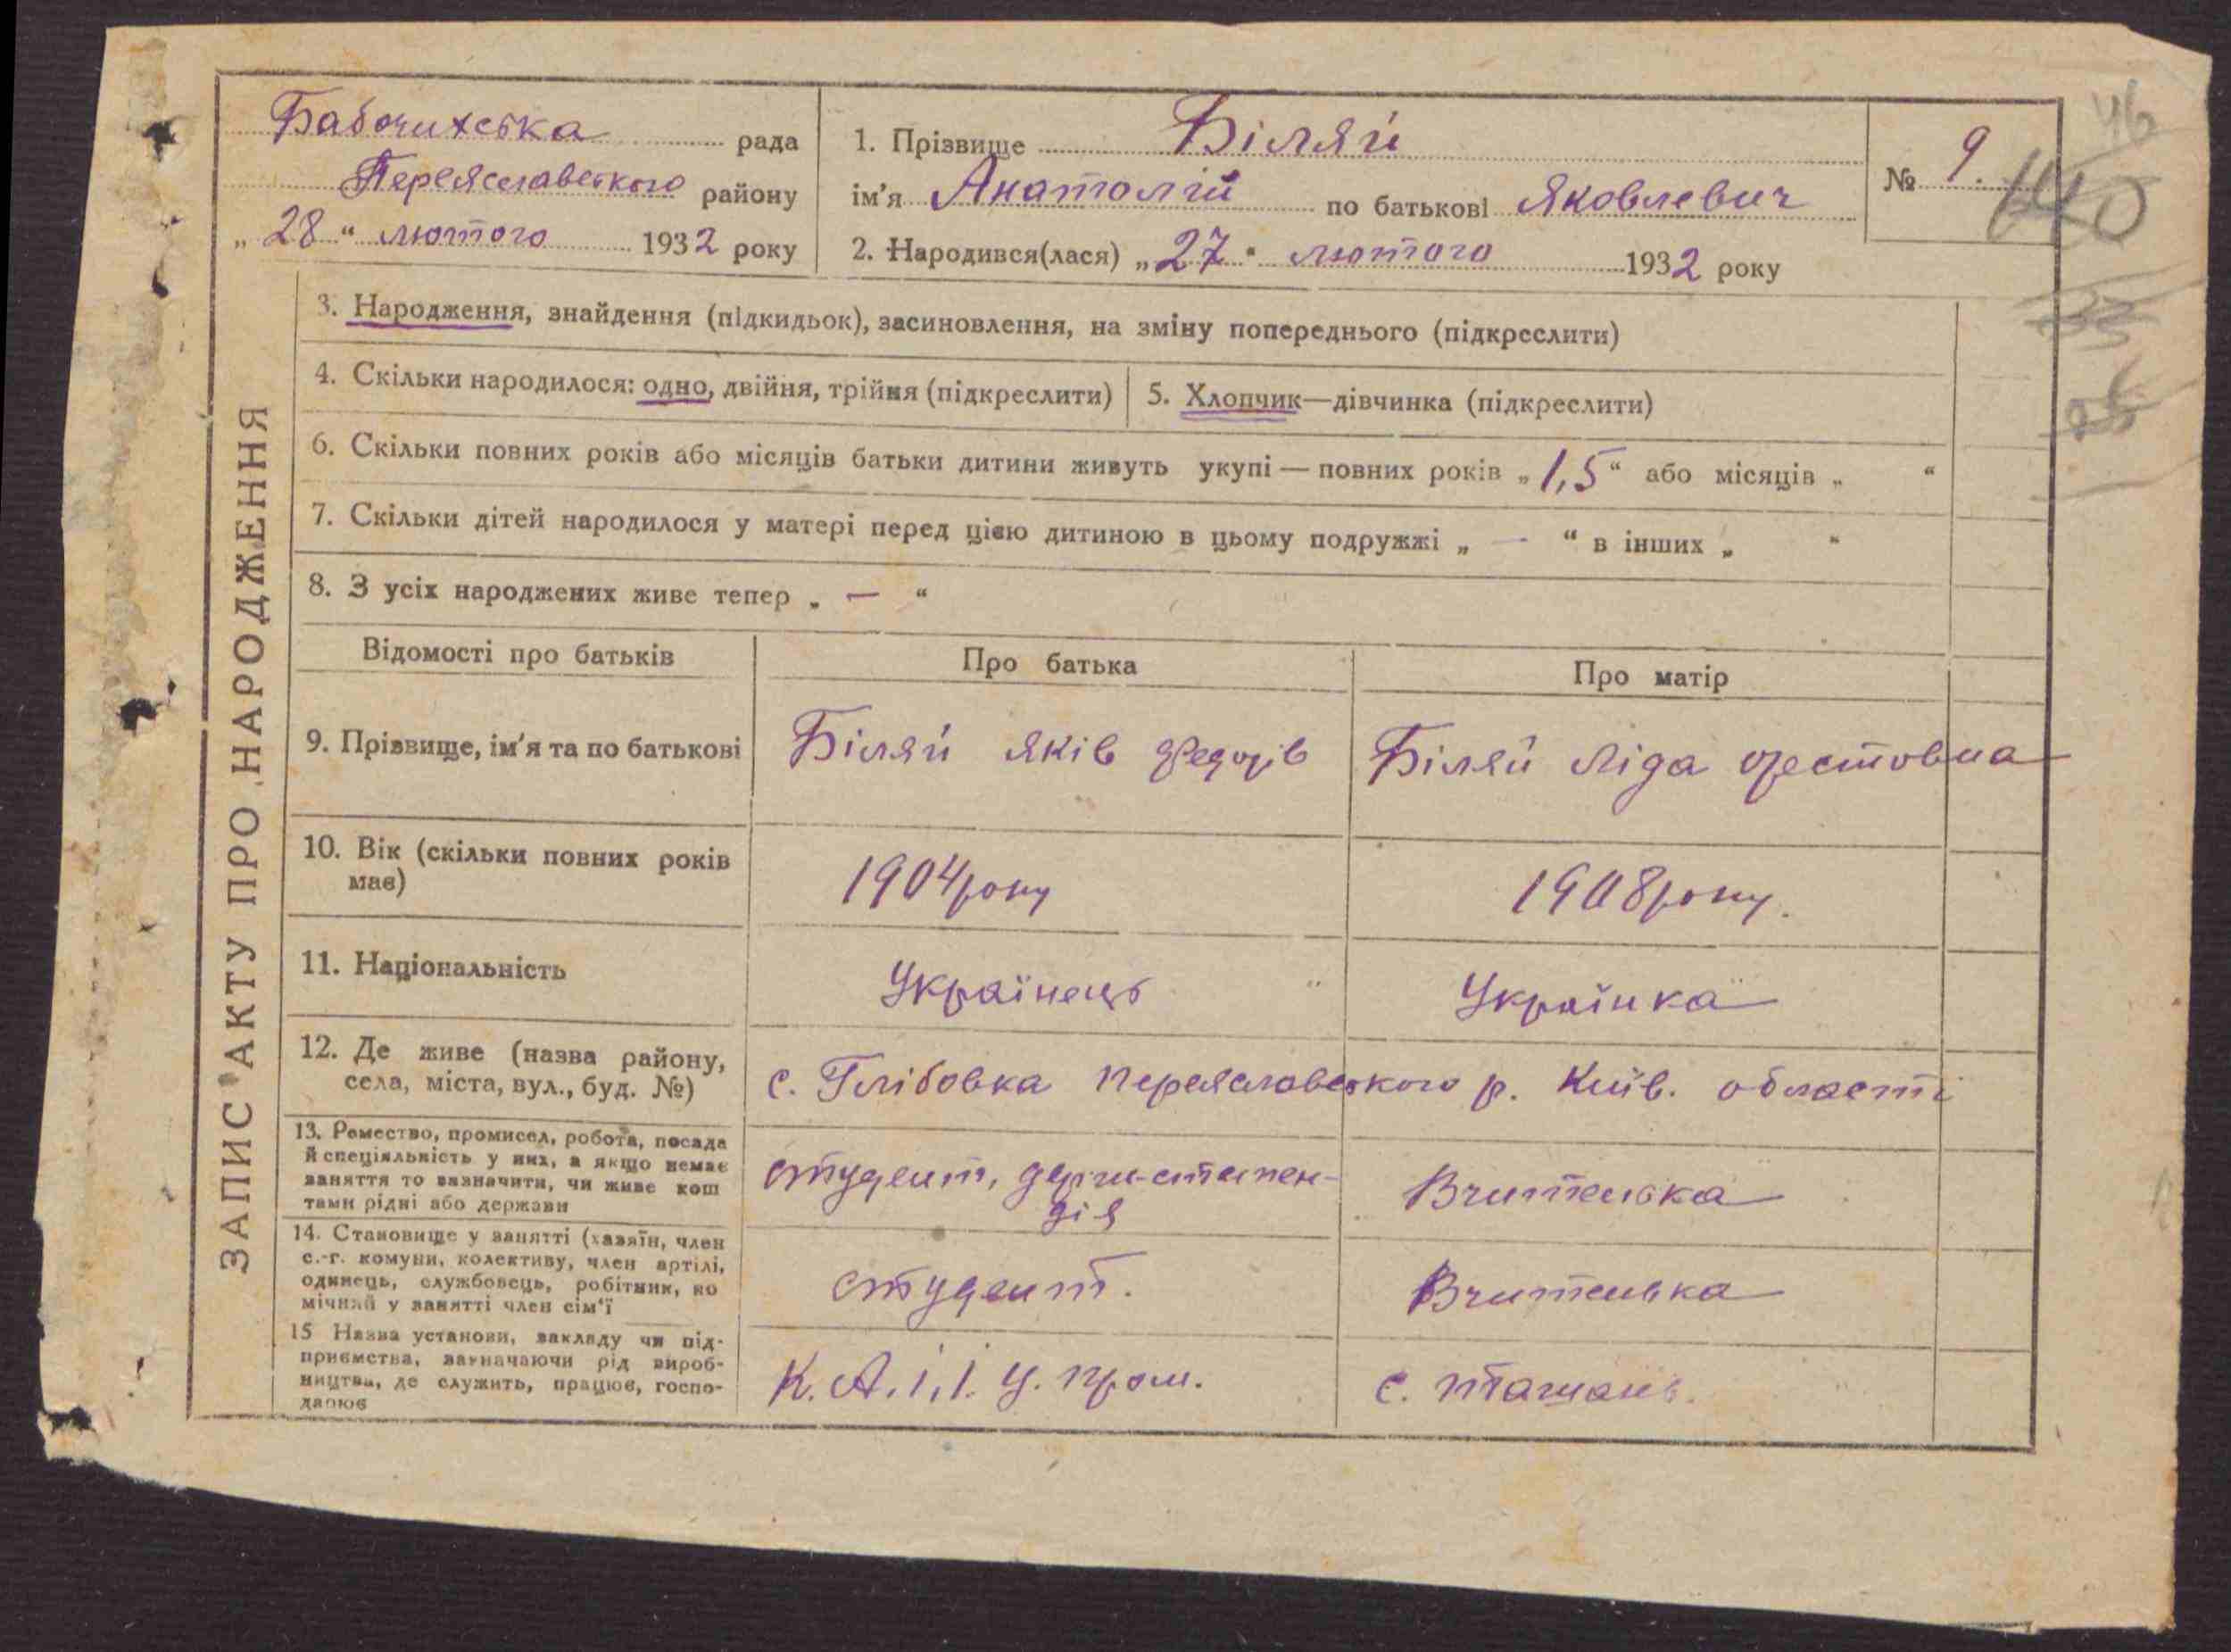 Бабочихська рада
Переяславського району
„28“ лютого 1932 року
1. Прізвище Біляй
ім'я Анатолій по батькові Яковлевич
2. Народився(лася) „27“ лютого 1932 року
№ 9.
46
140
ЗАПИС АКТУ ПРО НАРОДЖЕННЯ
3. Народження, знайдення (підкидьок), засиновлення, на зміну попереднього (підкреслити)
4. Скільки народилося: одно, двійня, трійня (підкреслити)
5. Хлопчик—дівчинка (підкреслити)
6. Скільки повних років або місяців батьки дитини живуть укупі — повних років „1,5“ або місяців „ “
7. Скільки дітей народилося у матері перед цією дитиною в цьому подружжі „ — “ в інших „ “
8. З усіх народжених живе тепер „ — “
Відомості про батьків
Про батька
Про матір
9. Прізвище, ім'я та по батькові
Біляй Яків Федорів
Біляй Ліда Орестовна
10. Вік (скільки повних років
має)
1904 року
1908 року.
11. Національність
Українець
Українка
12. Де живе (назва району,
села, міста, вул., буд. №)
с. Глібовка Переяславського р. Київ. області
13. Ремество, промисел, робота, посада
й спеціяльність у них, а якщо немає
заняття то зазначити, чи живе кош
тами рідні або держави
студент, держ-стипен-
дія
Вчителька
14. Становище у занятті (хазяїн, член
с.-г. комуни, колективу, член артілі,
одинець, службовець, робітник, по
мічний у занятті член сім'ї
студент.
Вчителька
15 Назва установи, закладу чи під-
приємства, зазначаючи рід вироб-
ництва, де служить, працює, госпо-
дарює
К. А. І, І. Ц. пром.
с. Пташань.